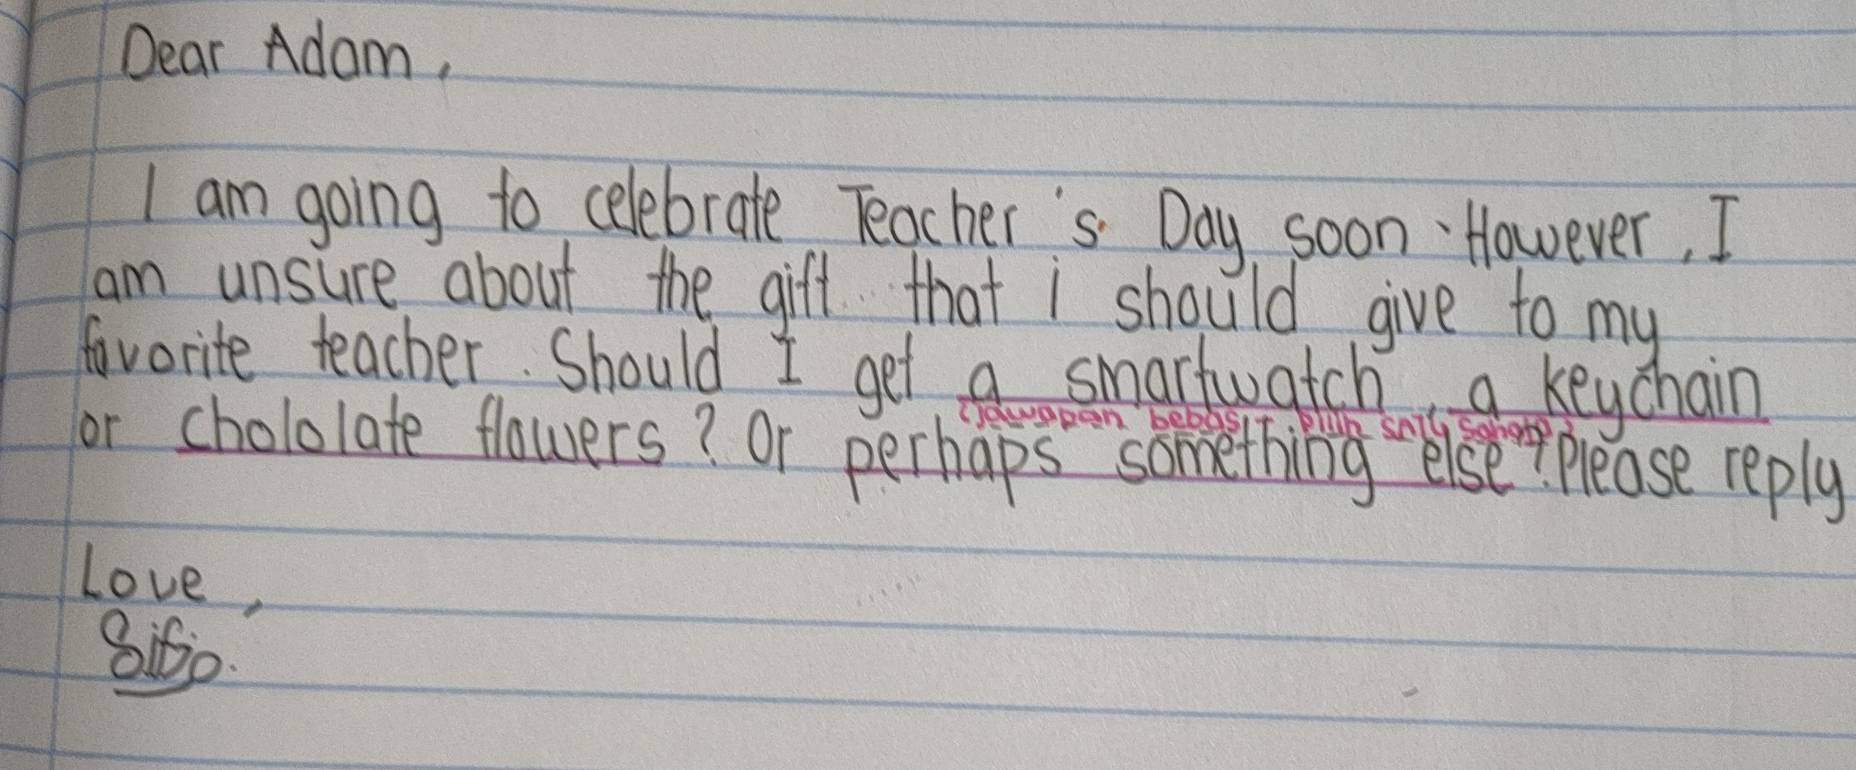 Dear Adam,
I am going to celebrate Teacher's Day soon. However, I
am unsure about the gift that i should give to my
favorite teacher. Should I get a smartwatch, a keychain
(Jawapan bebas, pilih satu sahaja)
or chololate flowers? Or perhaps something else? Please reply
Love,